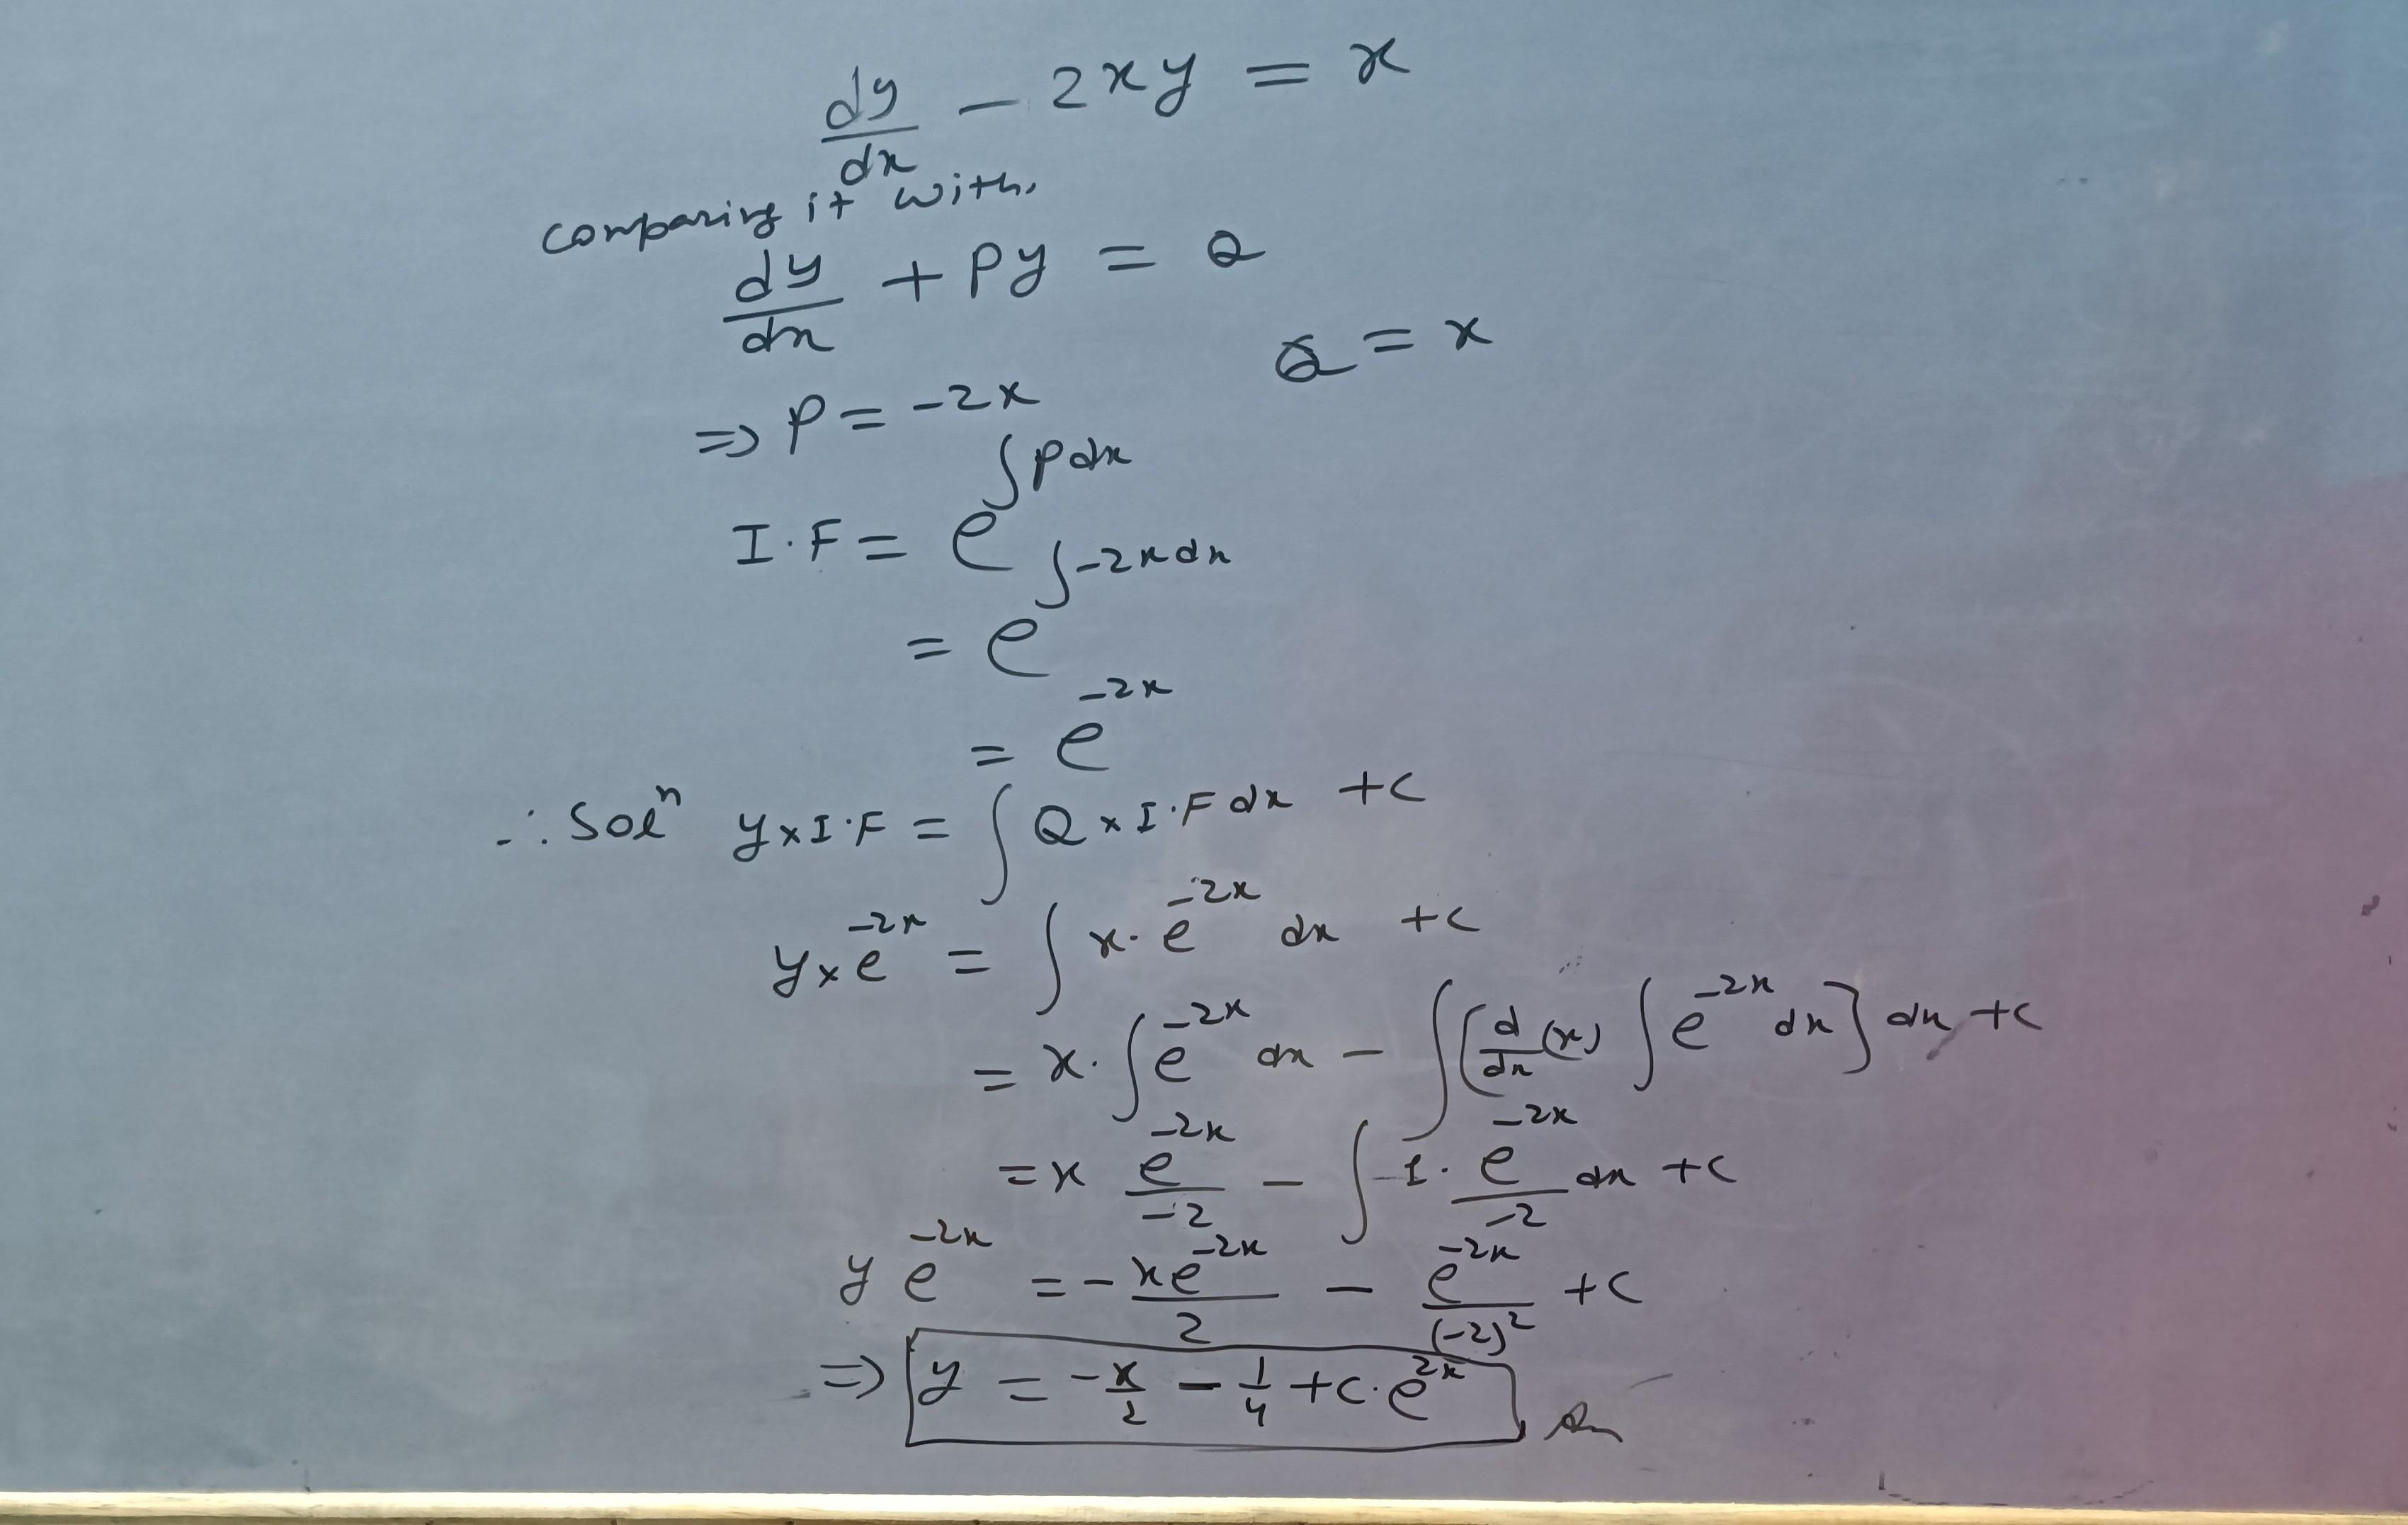 dy/dx - 2xy = x
comparing it with,
dy/dx + Py = Q
⇒ P = -2x    Q = x
I.F = e^∫Pdx
= e^∫-2xdx
= e^-2x
∴ Solⁿ y×I.F = ∫Q×I.F dx +c
y×e^-2x = ∫x·e^-2x dx +c
= x·∫e^-2x dx - ∫[d/dx(x) ∫e^-2x dx] dx +c
= x e^-2x/-2 - ∫1·e^-2x/-2 dx +c
y e^-2x = -xe^-2x/2 - e^-2x/(-2)² +c
⇒ y = -x/2 - 1/4 +c·e^2x